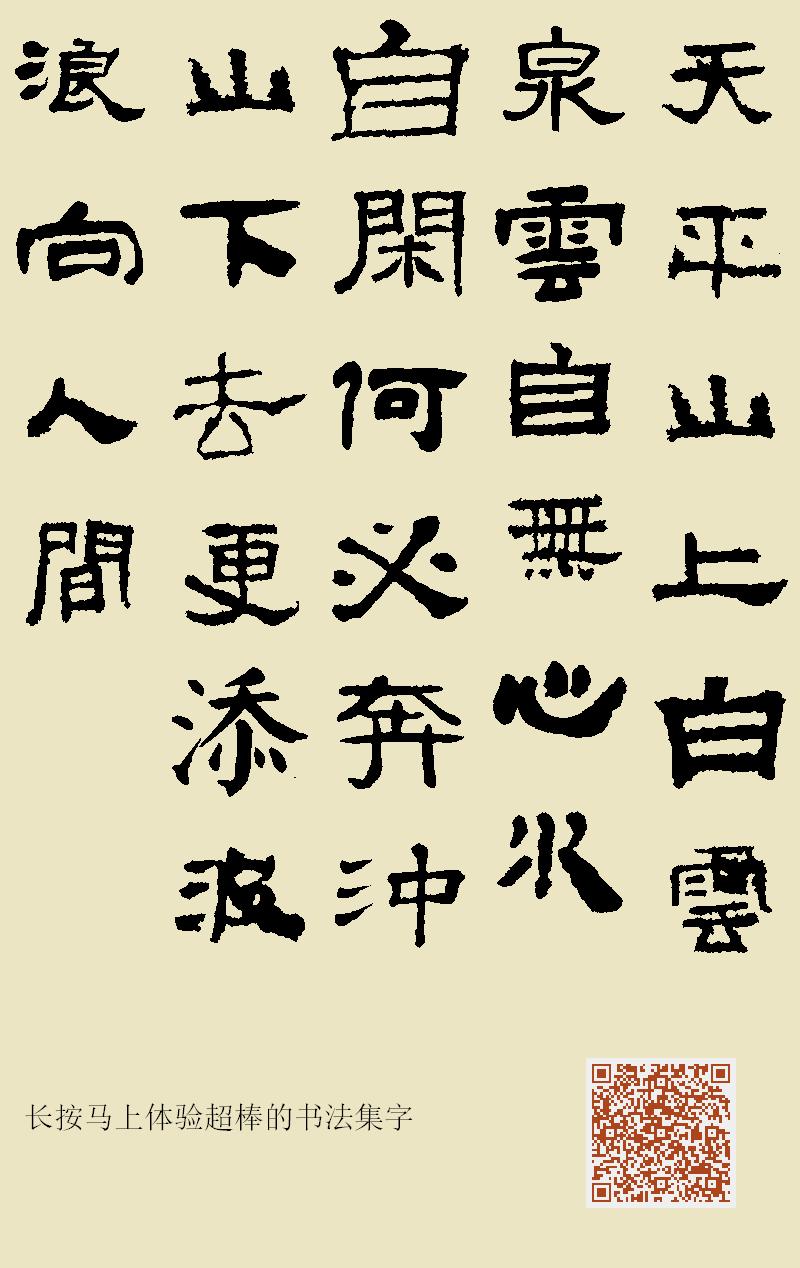 天平山上白雲
泉雲自無心水
自閑何必奔沖
山下去更添波
浪向人間
长按马上体验超棒的书法集字